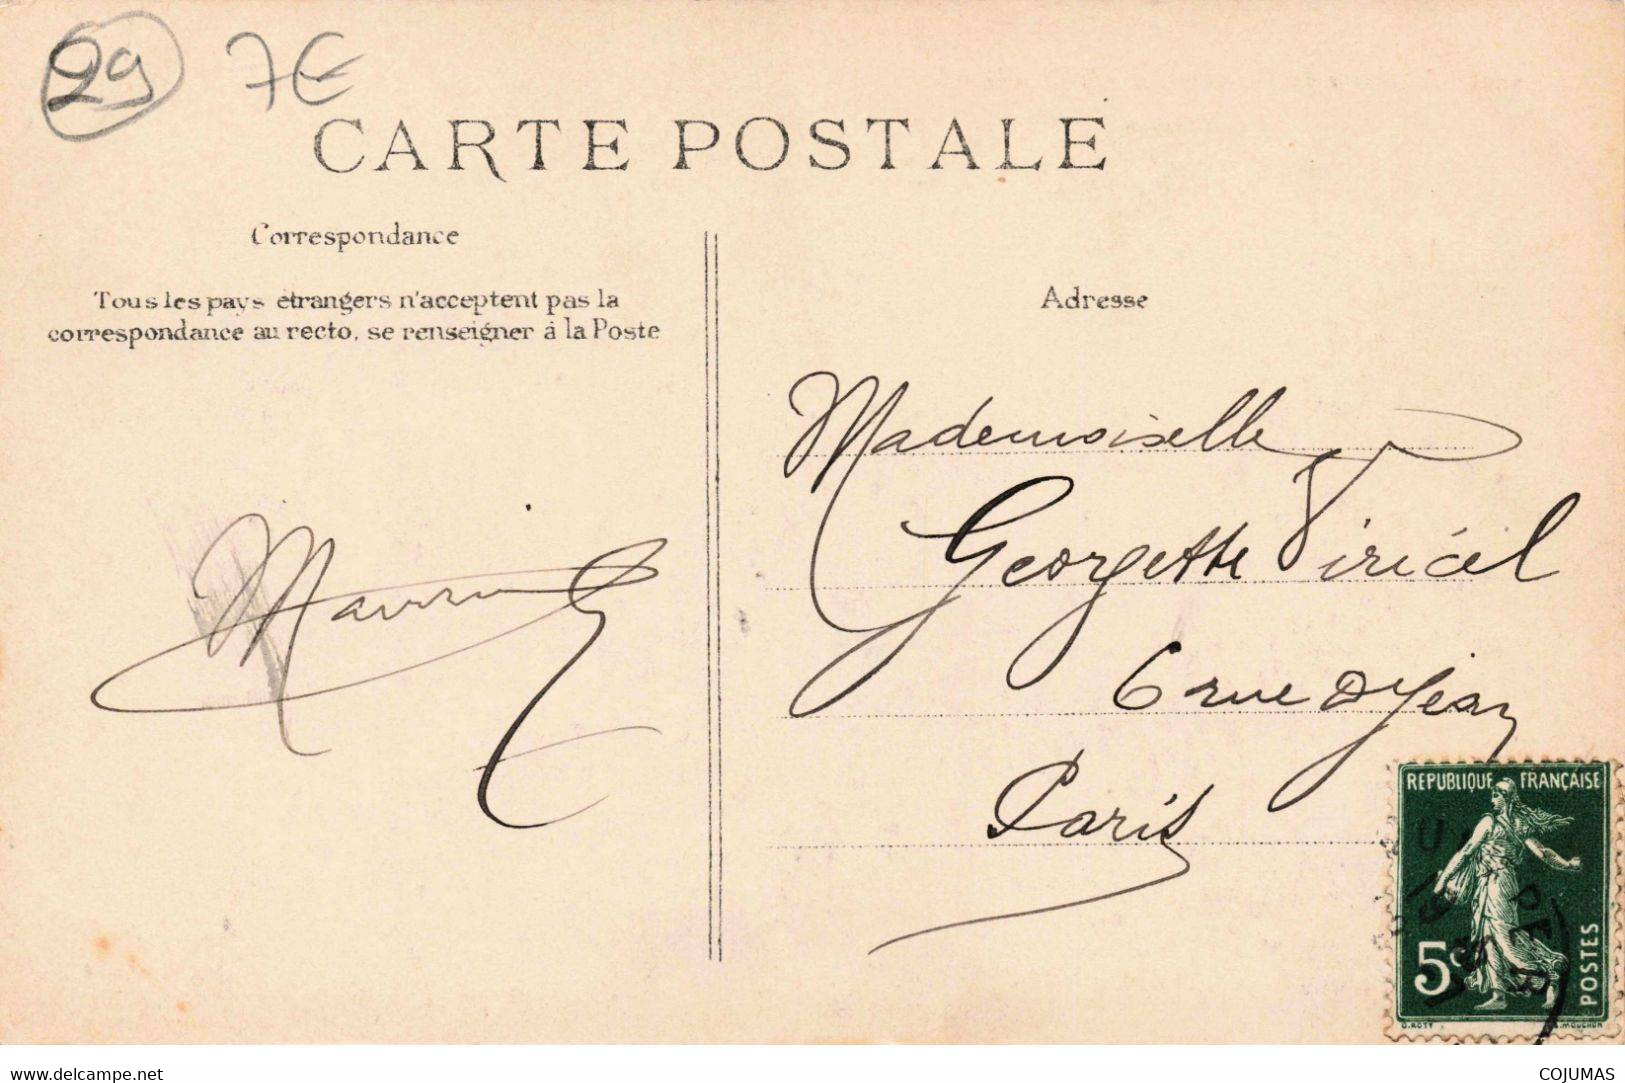 29 7€
CARTE POSTALE
Correspondance
Tous les pays étrangers n'acceptent pas la
correspondance au recto, se renseigner à la Poste
Adresse
Mademoiselle
Georgette Viricel
6 rue
Paris
REPUBLIQUE FRANÇAISE
5c
POSTES
O. ROTY
E. MOUCHON
delcampe.net
COJUMAS